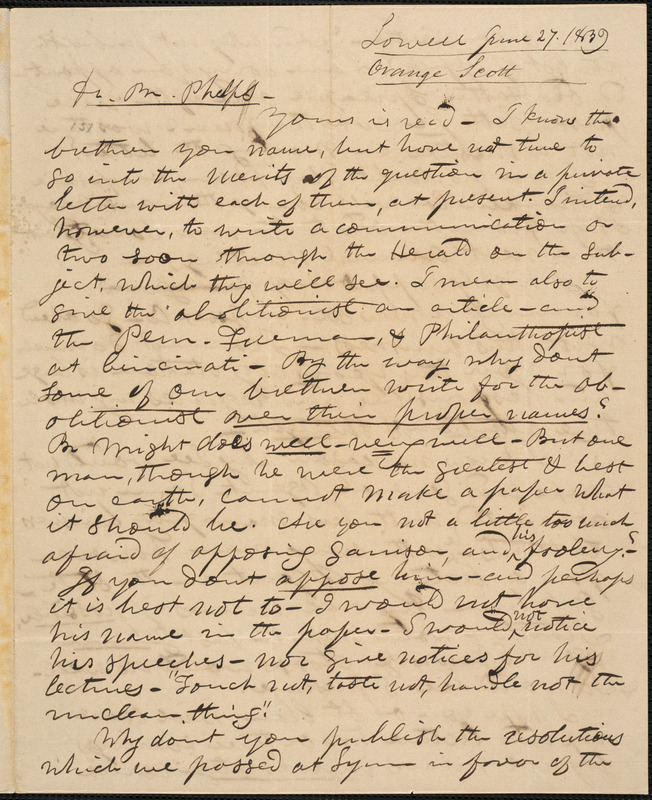 Lowell June 27. 1839
Orange Scott
Dr. Br. Phelps -
Yours is rec'd - I know the
brethren you name, but have not time to
go into the merits of the question in a private
letter with each of them, at present. I intend,
however, to write a communication or
two soon through the Herald on the sub-
ject, which they will see. I mean also to
give the abolitionist an article - and
the Penn. Freeman, & Philanthropist
at Cincinati - By the way, why dont
some of our brethren write for the ab-
olitionist over their proper names?
Br Wright does well - very well - But one
man, though he were the greatest & best
on earth, cannot make a paper what
it should be. Are you not a little too much
afraid of opposing Garrison, and his foolery? -
If you dont oppose him - and perhaps
it is best not to - I would not have
his name in the paper - I would not notice
his speeches - nor give notices for his
lectures - "Touch not, taste not, handle not the
unclean thing"
Why dont you publish the resolutions
which we passed at Lynn in favor of the